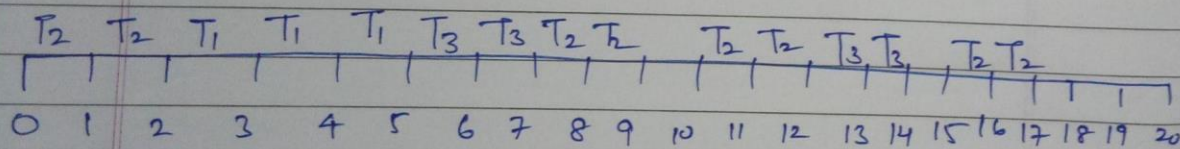 T2 T2 T1 T1 T1 T3 T3 T2 T2 T2 T2 T3 T3 T2 T2
0 1 2 3 4 5 6 7 8 9 10 11 12 13 14 15 16 17 18 19 20